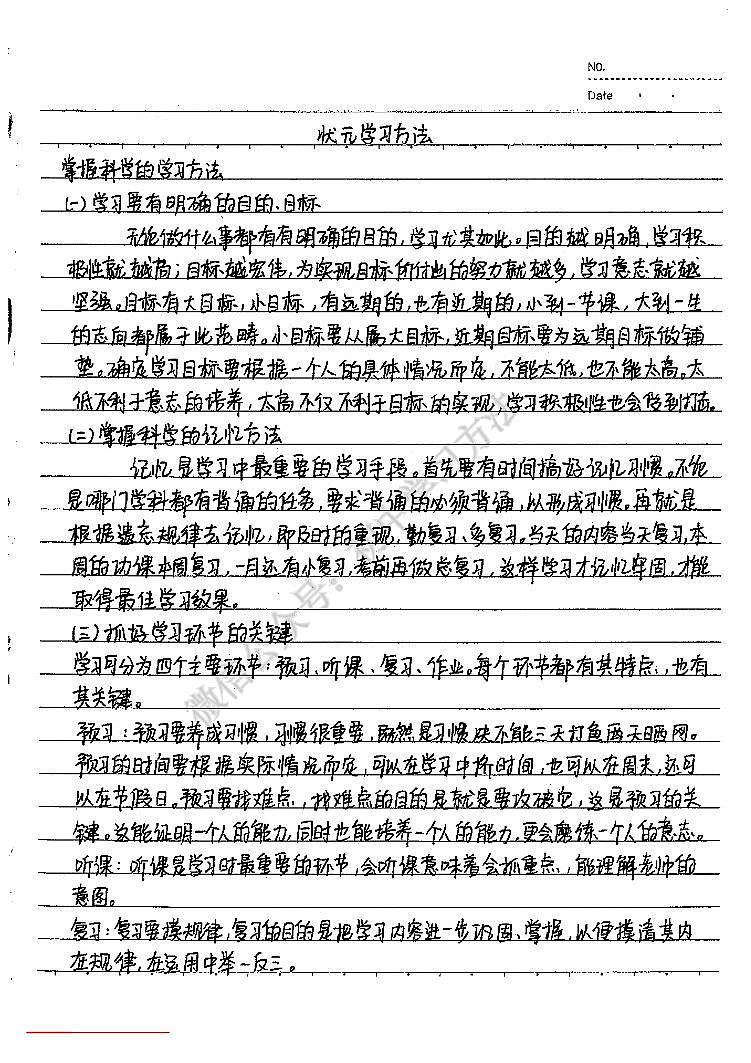 NO.
Date
状元学习方法
掌握科学的学习方法
(一)学习要有明确的目的、目标
无论做什么事都有有明确的目的,学习尤其如此。目的越明确,学习积
极性就越高;目标越宏伟,为实现目标所付出的努力就越多,学习意志就越
坚强。目标有大目标,小目标,有远期的,也有近期的,小到一节课,大到一生
的志向都属于此范畴。小目标要从属大目标,近期目标要为远期目标做铺
垫。确定学习目标要根据一个人的具体情况而定,不能太低,也不能太高。太
低不利于意志的培养,太高不仅不利于目标的实现,学习积极性也会受到打击。
(二)掌握科学的记忆方法
记忆是学习中最重要的学习手段。首先要有时间搞好记忆习惯。不论
是哪门学科都有背诵的任务,要求背诵的必须背诵,以形成习惯。再就是
根据遗忘规律去记忆,即及时的重现,勤复习、多复习。当天的内容当天复习,本
周的功课本周复习,一月还有小复习,考前再做总复习,这样学习才记忆牢固,才能
取得最佳学习效果。
(三)抓好学习环节的关键
学习可分为四个主要环节:预习、听课、复习、作业。每个环节都有其特点,也有
其关键。
预习:预习要养成习惯,习惯很重要,既然是习惯决不能三天打鱼两天晒网。
预习的时间要根据实际情况而定,可以在学习中挤时间,也可以在周末,还可
以在节假日。预习要找难点,找难点的目的是就是要攻破它,这是预习的关
键。这能证明一个人的能力,同时也能培养一个人的能力,更会磨练一个人的意志。
听课:听课是学习时最重要的环节,会听课意味着会抓重点,能理解老师的
意图。
复习:复习要摸规律,复习的目的是把学习内容进一步巩固、掌握,以便摸清其内
在规律,在运用中举一反三。
微信公众号:初中学习方法